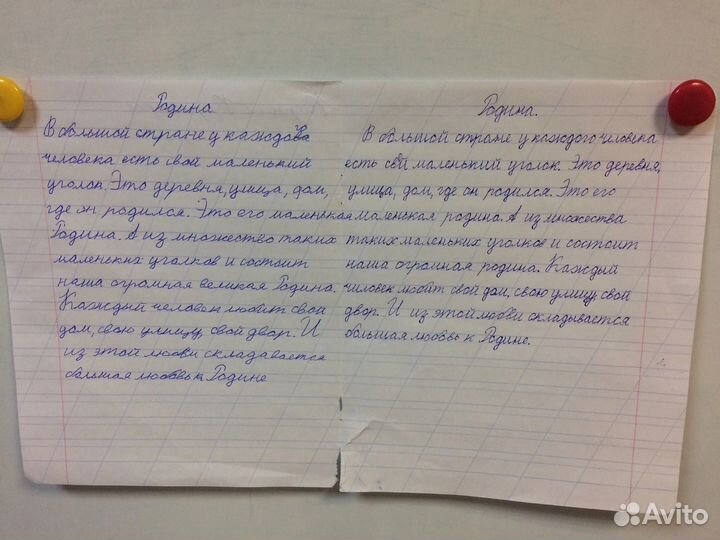 Родина
В большой стране у каждова
человека есть свой маленький
уголок. Это деревня, улица, дом,
где он родился. Это его маленькая
Родина. А из множество таких
маленких уголков и состоит
наша огромная великая Родина.
Каждый человек любит свой
дом, свою улицу, свой двор. И
из этой любви складавается
большая любовь к Родине
Родина.
В большой стране у каждого человека
есть свой маленький уголок. Это деревня,
улица, дом, где он родился. Это его
маленская родина. А из множества
таких маленьких уголков и состоит
наша огромная родина. Каждый
человек любит свой дом, свою улицу свой
двор. И из этой любви складывается
большая любовь к Родине.
Avito